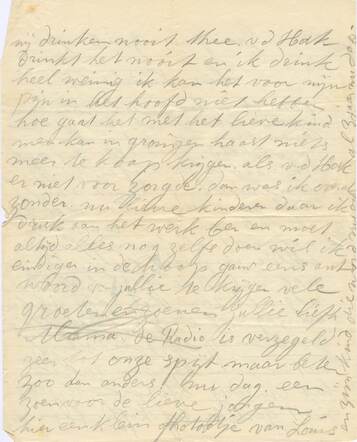 wij drinken nooit thee. v.d Hak
drinkt het nooit en ik drink
heel weinig ik kan het voor mijn
pijn in het hoofd niet hebben
hoe gaat het met het lieve kind
men kan in gronigen haast niets
meer te koop krijgen als v.d Hak
er niet voor zorgde. dan was ik overal
zonder. nu lieve kinderen daar ik
druk aan het werk ben en moet
altijd alles nog zelfs doen wil ik
eindigen in de hoop gauw eens ant
woord v jullie te krijgen vele
groeten en zoenen jullie liefh
Mama de Radio is verzegeld
zeer tot onze spijt maar bete
zoo dan anders. nu dag. een
zoen voor de lieve jongen
hier een klein photootje van Louis
en zijn kind die